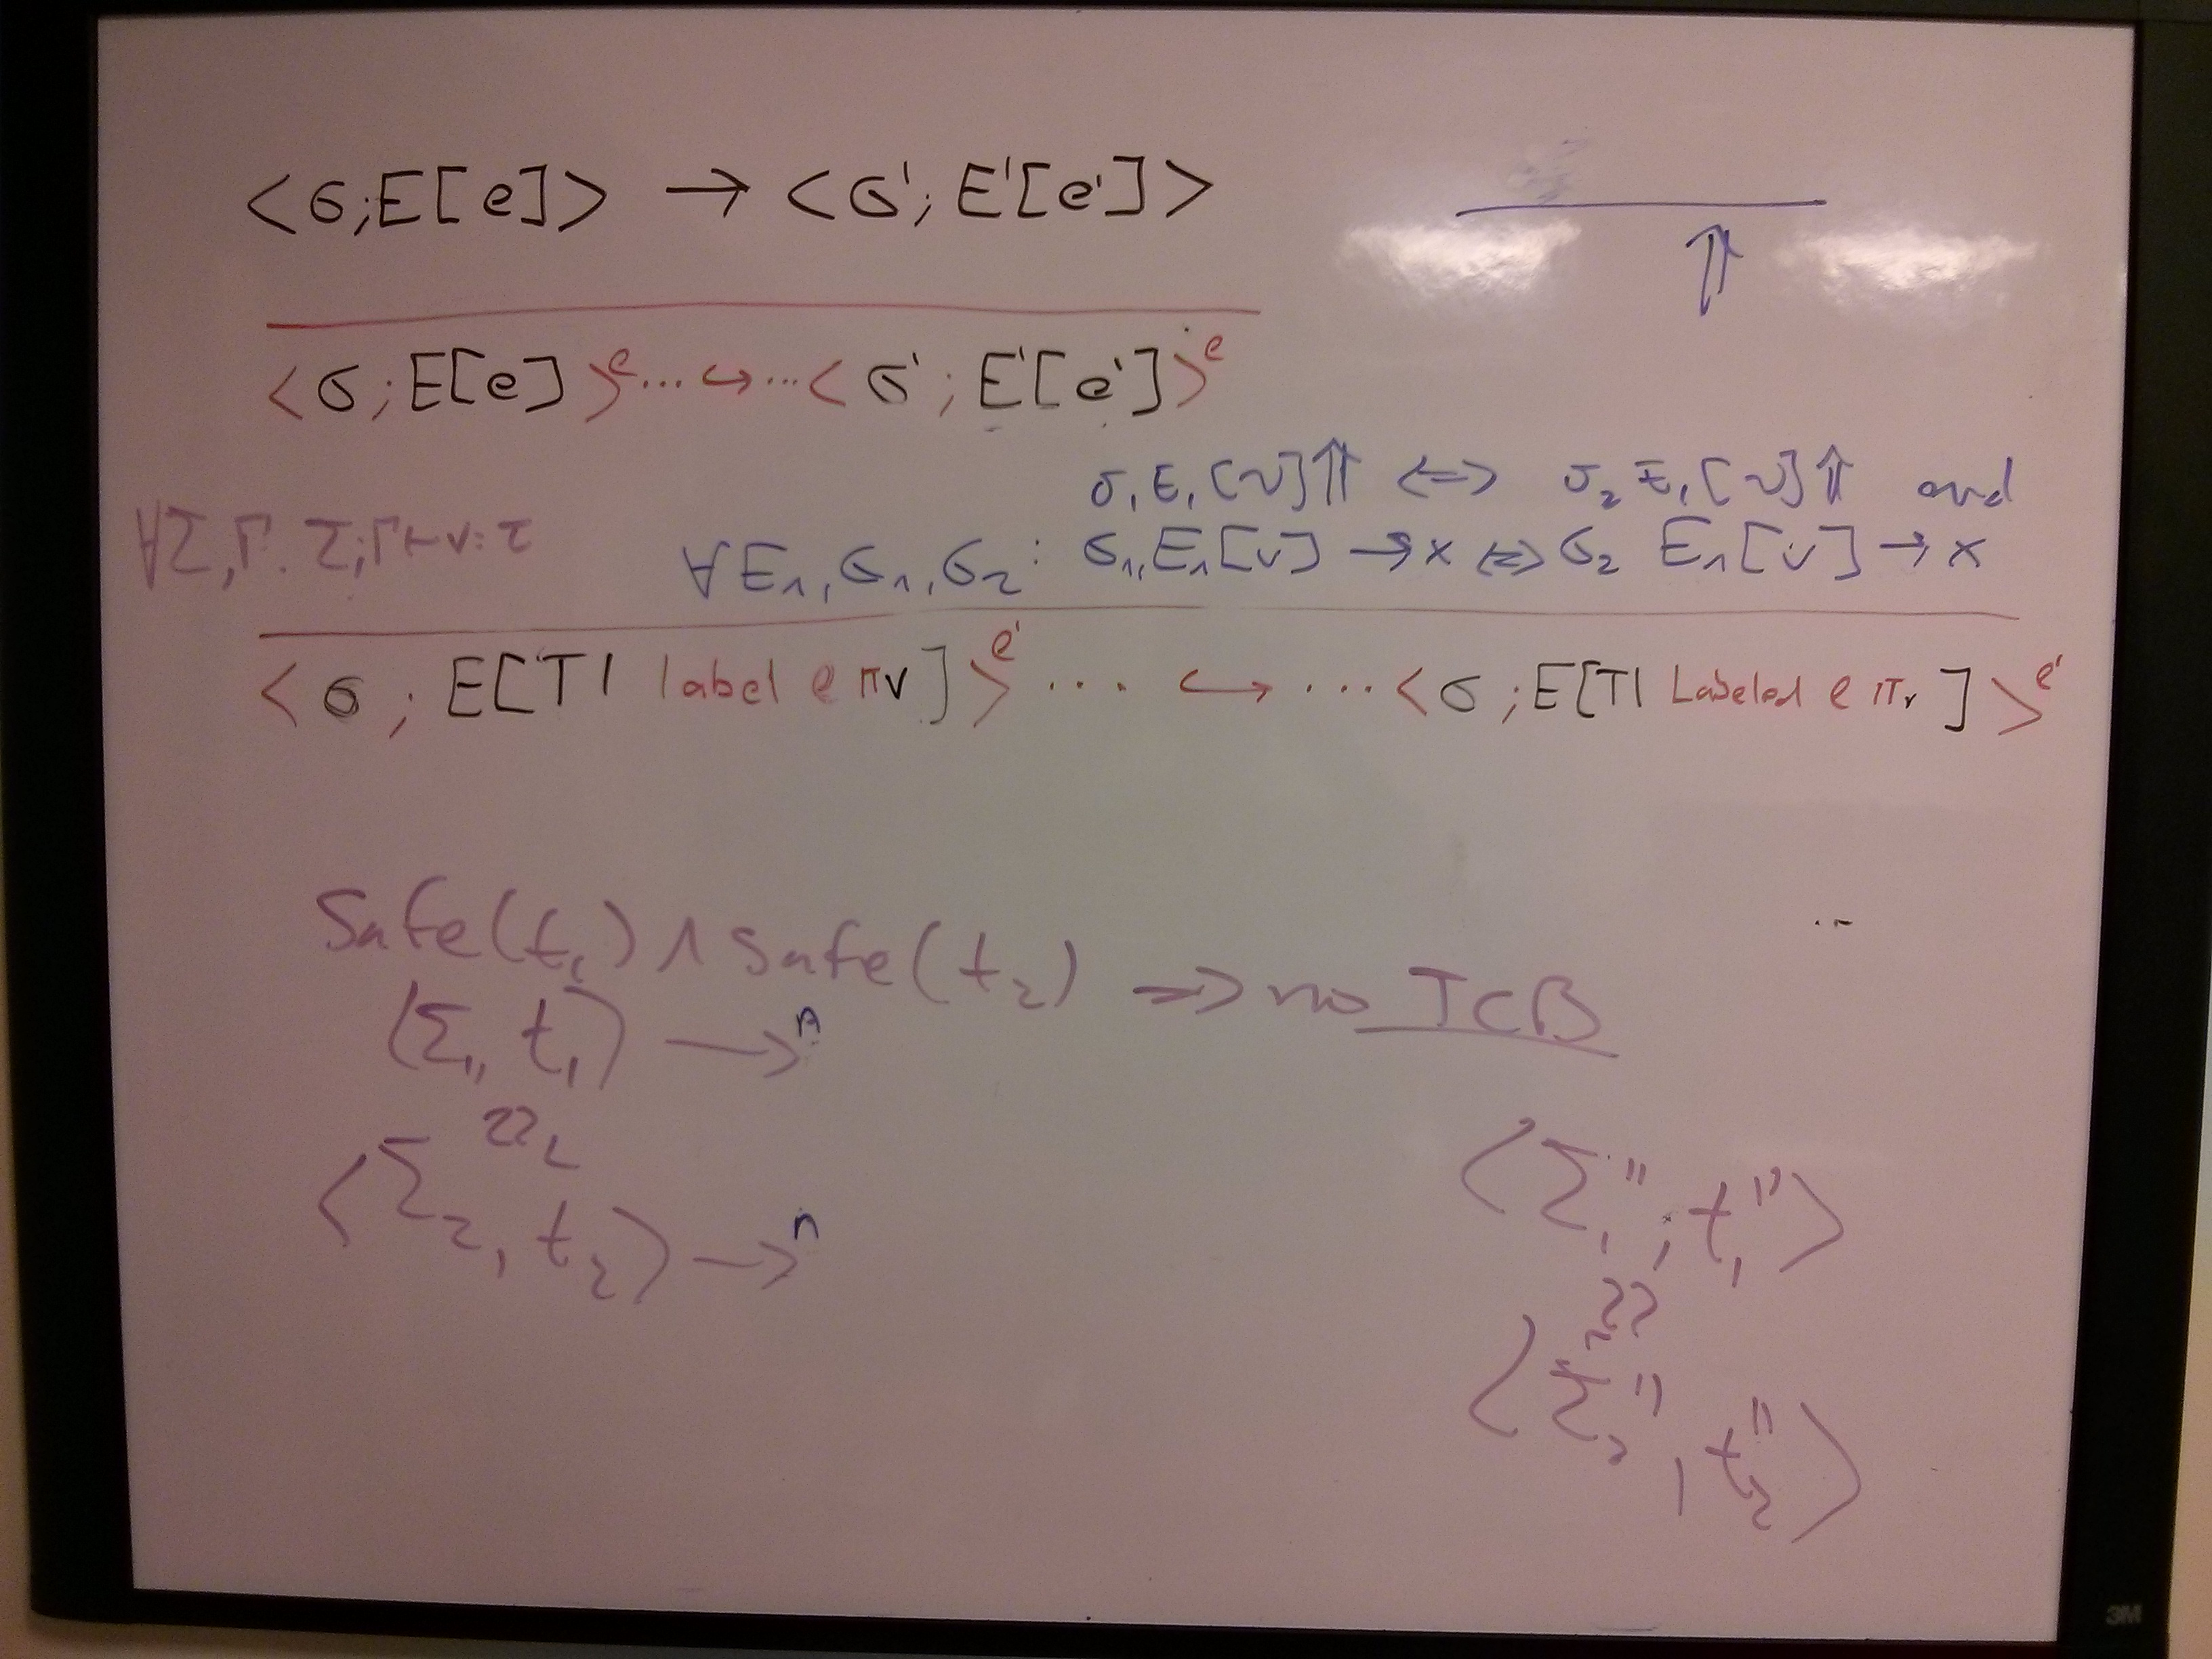 <σ;E[e]> → <σ';E'[e']>
⇑
<σ;E[e]>^e ... ↪ ... <σ';E'[e']>^e
σ₁E₁[v]⇑ <=> σ₂E₁[v]⇑ and
∀Σ,Γ. Σ;Γ⊢v:τ
∀E₁,σ₁,σ₂: σ₁,E₁[v] → x <=> σ₂ E₁[v] → x
<σ;E[TI label e πv]>^e' .... ↪ ...<σ;E[TI Labeled e πv]>^e'
Safe(t₁) ∧ Safe(t₂) => no TCB
⟨Σ₁,t₁⟩ →ⁿ
≈L
⟨Σ₂,t₂⟩ →ⁿ
⟨Σ₁'';t₁''⟩
≈
⟨Σ₂'',t₂''⟩
3M